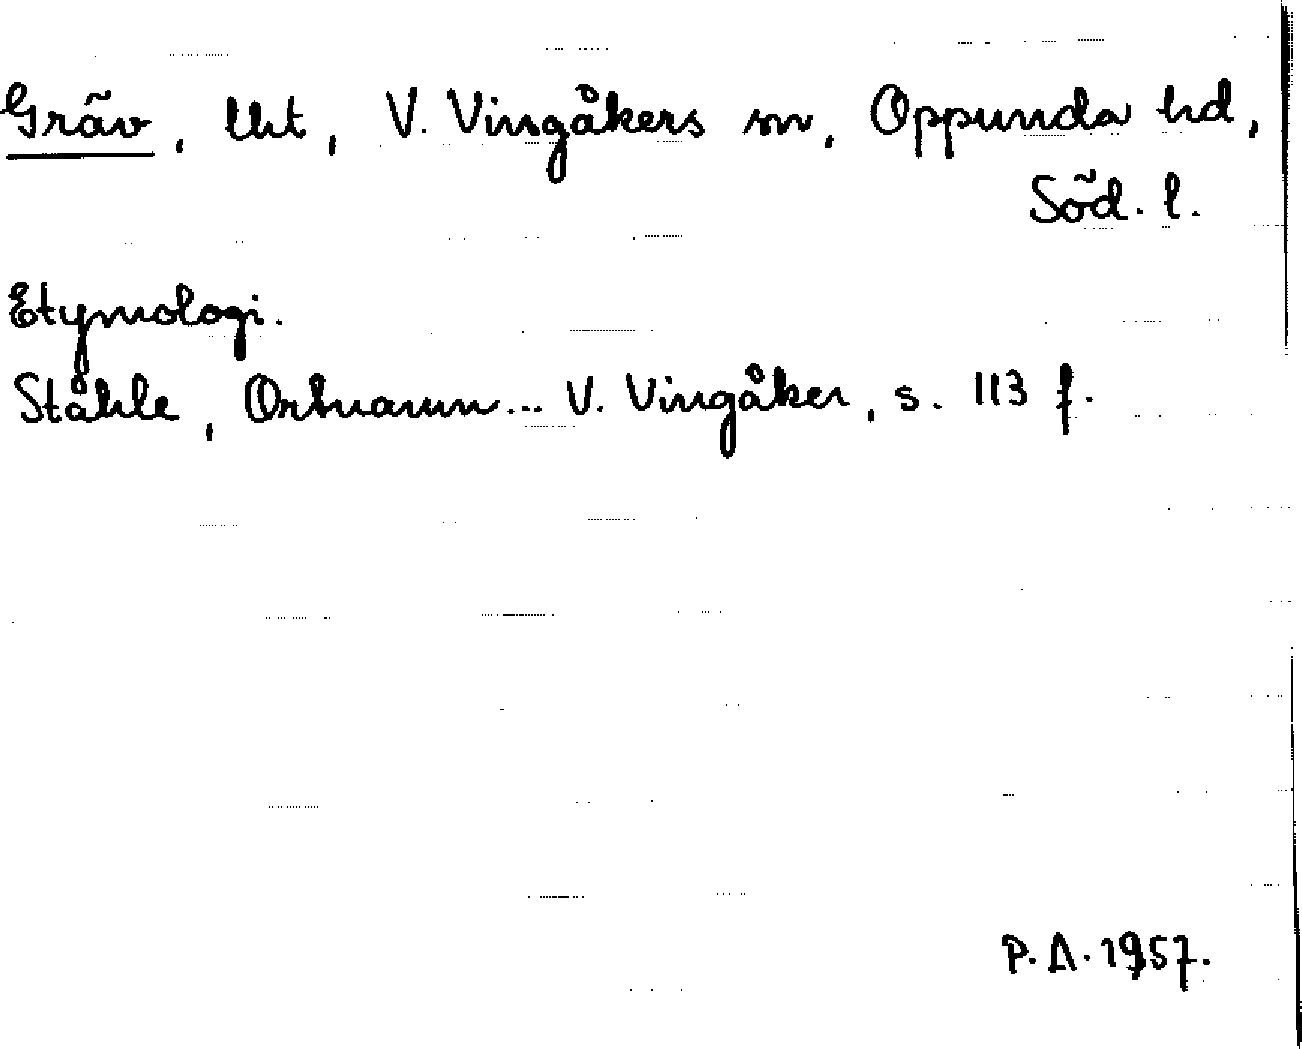 Gräv, lht, V. Vingåkers sn, Oppunda hd,
Söd. l.
Etymologi.
Ståhle, Ortnamn... V. Vingåker, s. 113 f.
P.A. 1957.